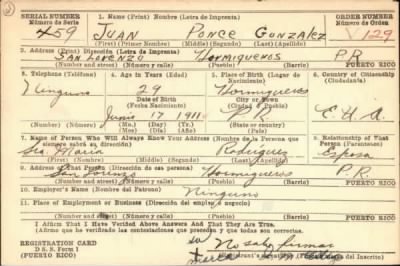 SERIAL NUMBER 1. Name (Print) Nombre (Letra de Imprenta) ORDER NUMBER
Número de Serie Número de Orden
459 JUAN PONCE GONZALEZ 1129
(First) (Primer Nombre) (Middle) (Segundo) (Last) (Apellido)
2. Address (Print) Dirección (Letra de Imprenta)
SAN LORENZO HORMIGUEROS P.R.
(Number and street) (Número y calle) (Town) (Pueblo) (Barrio) PUERTO RICO
3. Telephone (Teléfono) 4. Age in Years (Edad) 5. Place of Birth (Lugar de Nacimiento) 6. Country of Citizenship (Ciudadanía)
Ninguno 29 Hormigueros
Date of Birth (Fecha Nacimiento) City or Town (Ciudad o Pueblo)
Junio 17 1911 P.R. E.U.A.
(Mo.) (Day) (Yr.) (State or country)
(Mes) (Día) (Año) (Estado o país)
7. Name of Person Who Will Always Know Your Address (Nombre de la Persona que siempre sabrá su dirección) 8. Relationship of That Person (Parentesco)
María Rodríguez Esposa
(First) (Nombre) (Middle) (Segundo) (Last) (Apellido)
9. Address of That Person (Dirección de esa persona)
San Lorenzo Hormigueros P.R.
(Number and street) (Número y calle) (Town) (Pueblo) (Barrio) PUERTO RICO
10. Employer's Name (Nombre del Patrono)
Ninguno
11. Place of Employment or Business (Dirección del empleo o negocio)
(Number and street) (Número y calle) (Town) (Pueblo) (Barrio)
I Affirm That I Have Verified Above Answers and That They Are True.
(Afirmo que he verificado las contestaciones que preceden y que todas son correctas.
REGISTRATION CARD
D S S. Form 1
(PUERTO RICO)
su No sabe firmar
marca
(Firma del Inscrito)